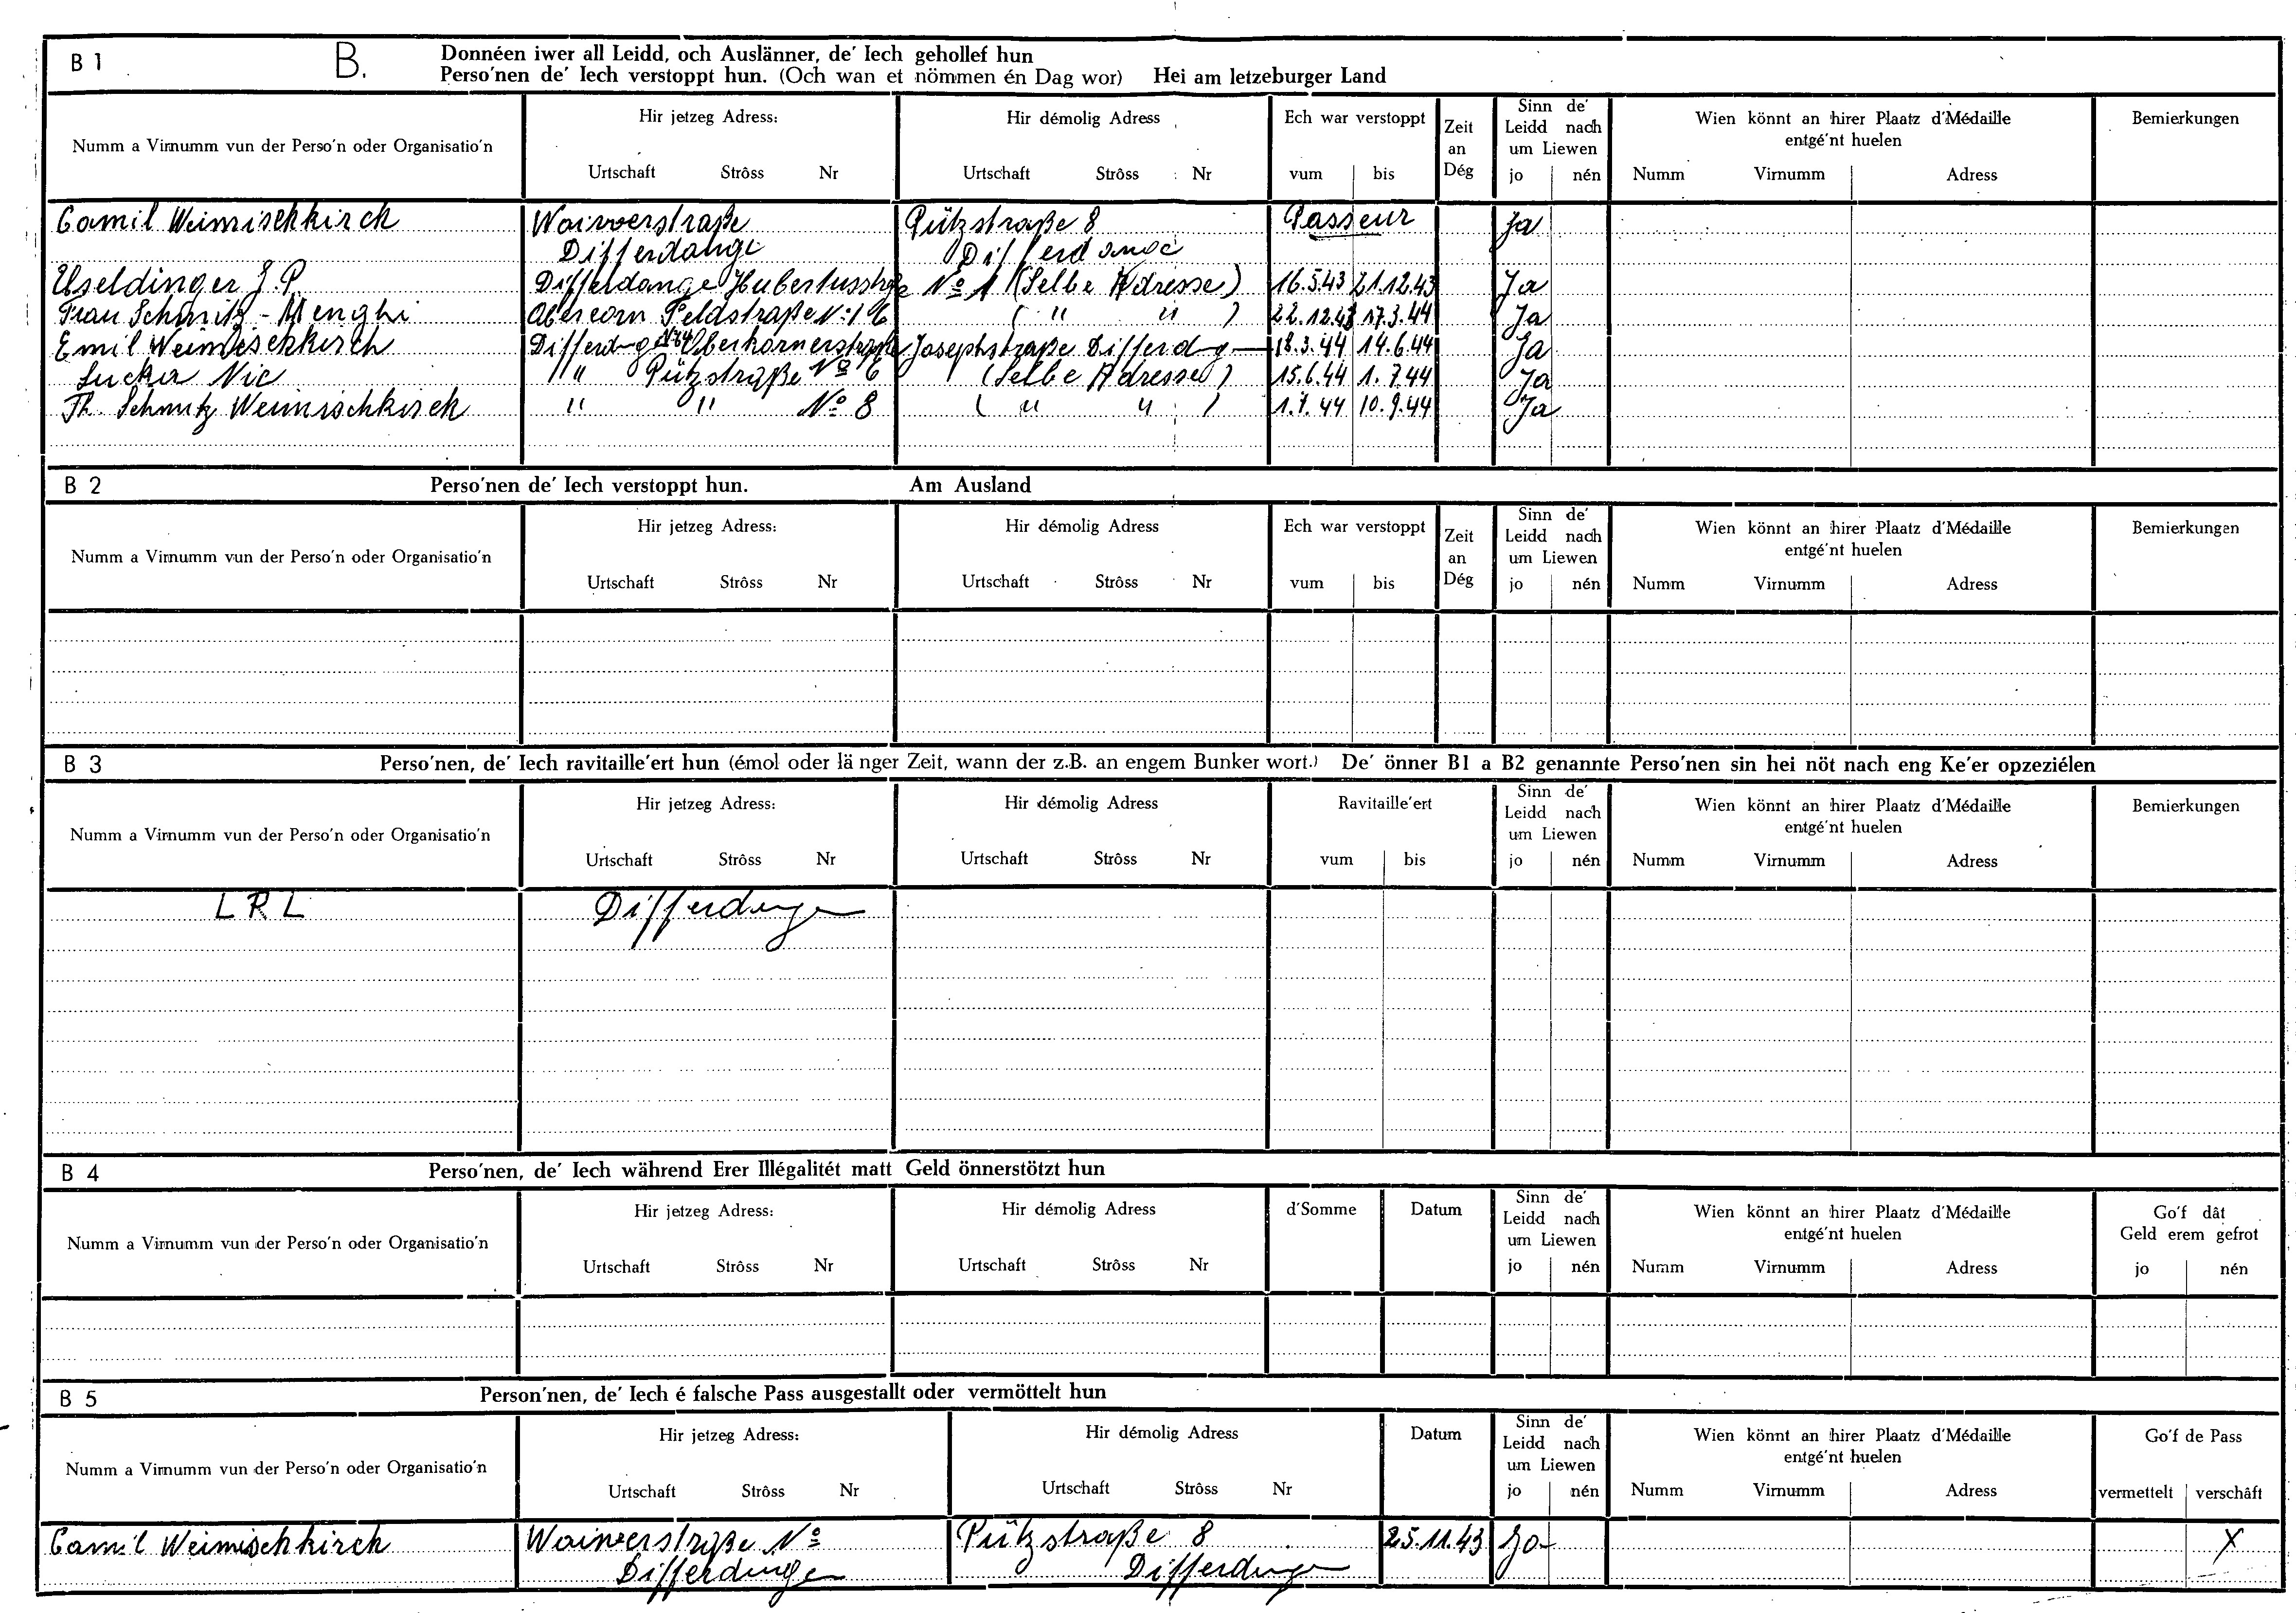 B 1 B. Donnéen iwer all Leidd, och Auslänner, de' Iech gehollef hun
Perso'nen de' Iech verstoppt hun. (Och wan et nömmen én Dag wor) Hei am letzeburger Land
Numm a Virnumm vun der Perso'n oder Organisatio'n Hir jetzeg Adress: Hir démolig Adress Ech war verstoppt Zeit an Dég Sinn de' Leidd nach um Liewen Wien könnt an hirer Plaatz d'Médaille entgé'nt huelen Bemierkungen
Urtschaft Strôss Nr Urtschaft Strôss Nr vum bis jo nén Numm Virnumm Adress
Camil Weimischkirch Waiwerstraße Pützstraße 8 Passeur Ja
Differdange Differdange
Useldinger J.P. Differdange Hubertusstraße No 1 (Selbe Adresse) 16.5.43 21.12.43 Ja
Frau Schmitz-Menghi Obercorn Feldstraße No 16 ( " " ) 22.12.43 17.3.44 Ja
Emil Weimischkirch Differdange Oberkornerstraße Josephstraße Differdingen 18.3.44 14.6.44 Ja
Nic " Pützstraße No 6 (Selbe Adresse) 15.6.44 1.7.44 Ja
Th. Schmitz Weimischkirch " " No 8 ( " " ) 1.7.44 10.9.44 Ja
B 2 Perso'nen de' Iech verstoppt hun. Am Ausland
Numm a Virnumm vun der Perso'n oder Organisatio'n Hir jetzeg Adress: Hir démolig Adress Ech war verstoppt Zeit an Dég Sinn de' Leidd nach um Liewen Wien könnt an hirer Plaatz d'Médaille entgé'nt huelen Bemierkungen
Urtschaft Strôss Nr Urtschaft Strôss Nr vum bis jo nén Numm Virnumm Adress
B 3 Perso'nen, de' Iech ravitaille'ert hun (émol oder länger Zeit, wann der z.B. an engem Bunker wort.) De' önner B1 a B2 genannte Perso'nen sin hei nöt nach eng Ke'er opzeziélen
Numm a Virnumm vun der Perso'n oder Organisatio'n Hir jetzeg Adress: Hir démolig Adress Ravitaille'ert Sinn de' Leidd nach um Liewen Wien könnt an hirer Plaatz d'Médaille entgé'nt huelen Bemierkungen
Urtschaft Strôss Nr Urtschaft Strôss Nr vum bis jo nén Numm Virnumm Adress
LRL Differdingen
B 4 Perso'nen, de' Iech während Erer Illégalitét matt Geld önnerstötzt hun
Numm a Virnumm vun der Perso'n oder Organisatio'n Hir jetzeg Adress: Hir démolig Adress d'Somme Datum Sinn de' Leidd nach um Liewen Wien könnt an hirer Plaatz d'Médaille entgé'nt huelen Go'f dât Geld erem gefrot
Urtschaft Strôss Nr Urtschaft Strôss Nr jo nén Numm Virnumm Adress jo nén
B 5 Person'nen, de' Iech é falsche Pass ausgestallt oder vermöttelt hun
Numm a Virnumm vun der Perso'n oder Organisatio'n Hir jetzeg Adress: Hir démolig Adress Datum Sinn de' Leidd nach um Liewen Wien könnt an hirer Plaatz d'Médaille entgé'nt huelen Go'f de Pass
Urtschaft Strôss Nr Urtschaft Strôss Nr jo nén Numm Virnumm Adress vermettelt verschâft
Camil Weimischkirch Waiwerstraße No Pützstraße 8 25.11.43 Jo X
Differdingen Differdingen